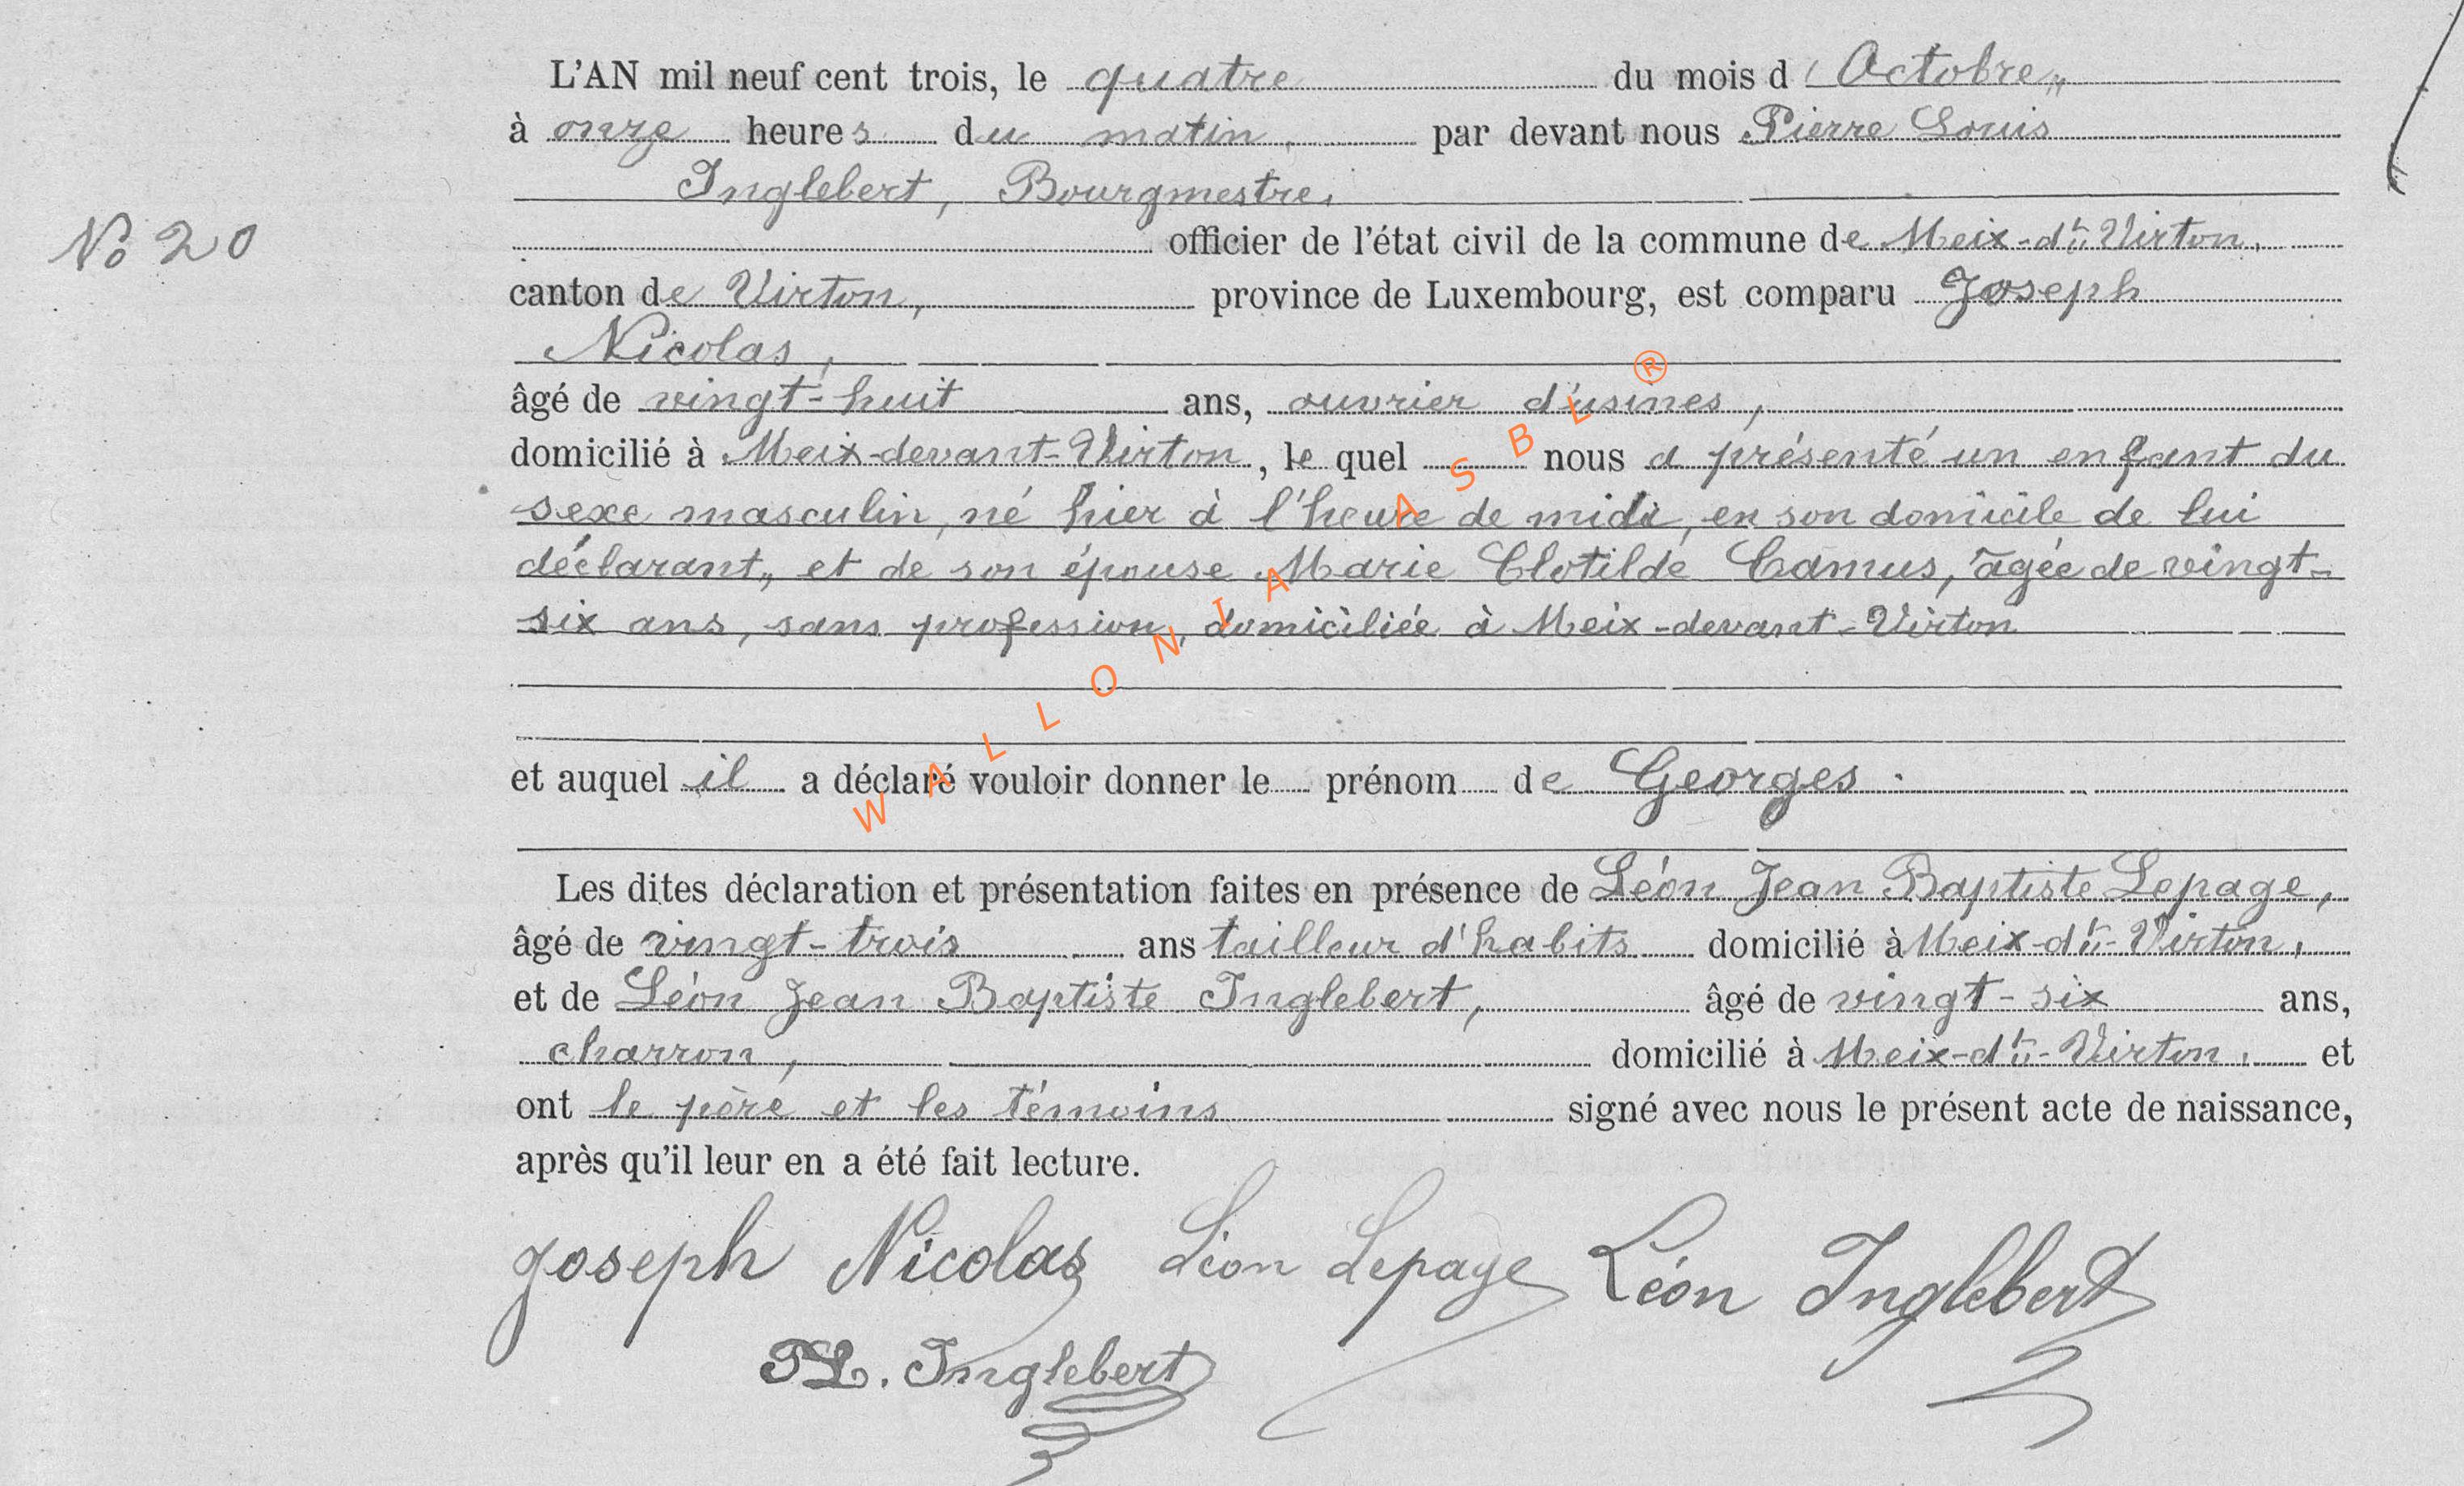 L'AN mil neuf cent trois, le quatre du mois d'Octobre,,
à onze heures du matin, par devant nous Pierre Louis
Inglebert, Bourgmestre,
No 20
officier de l'état civil de la commune de Meix-dt-Virton,
canton de Virton, province de Luxembourg, est comparu Joseph
Nicolas,
âgé de vingt-huit ans, ouvrier d'usines,
domicilié à Meix-devant-Virton, le quel nous a présenté un enfant du
sexe masculin, né hier à l'heure de midi, en son domicile de lui
déclarant,, et de son épouse Marie Clotilde Camus, âgée de vingt-
six ans, sans profession, domiciliée à Meix-devant-Virton
et auquel il a déclaré vouloir donner le prénom de Georges.
Les dites déclaration et présentation faites en présence de Léon Jean Baptiste Lepage,
âgé de vingt-trois ans tailleur d'habits domicilié à Meix-dt-Virton,
et de Léon Jean Baptiste Inglebert, âgé de vingt-six ans,
charron, domicilié à Meix-dt-Virton, et
ont le père et les témoins signé avec nous le présent acte de naissance,
après qu'il leur en a été fait lecture.
Joseph Nicolas Léon Lepage Léon Inglebert
PL. Inglebert
WALLONIA ASBL ®